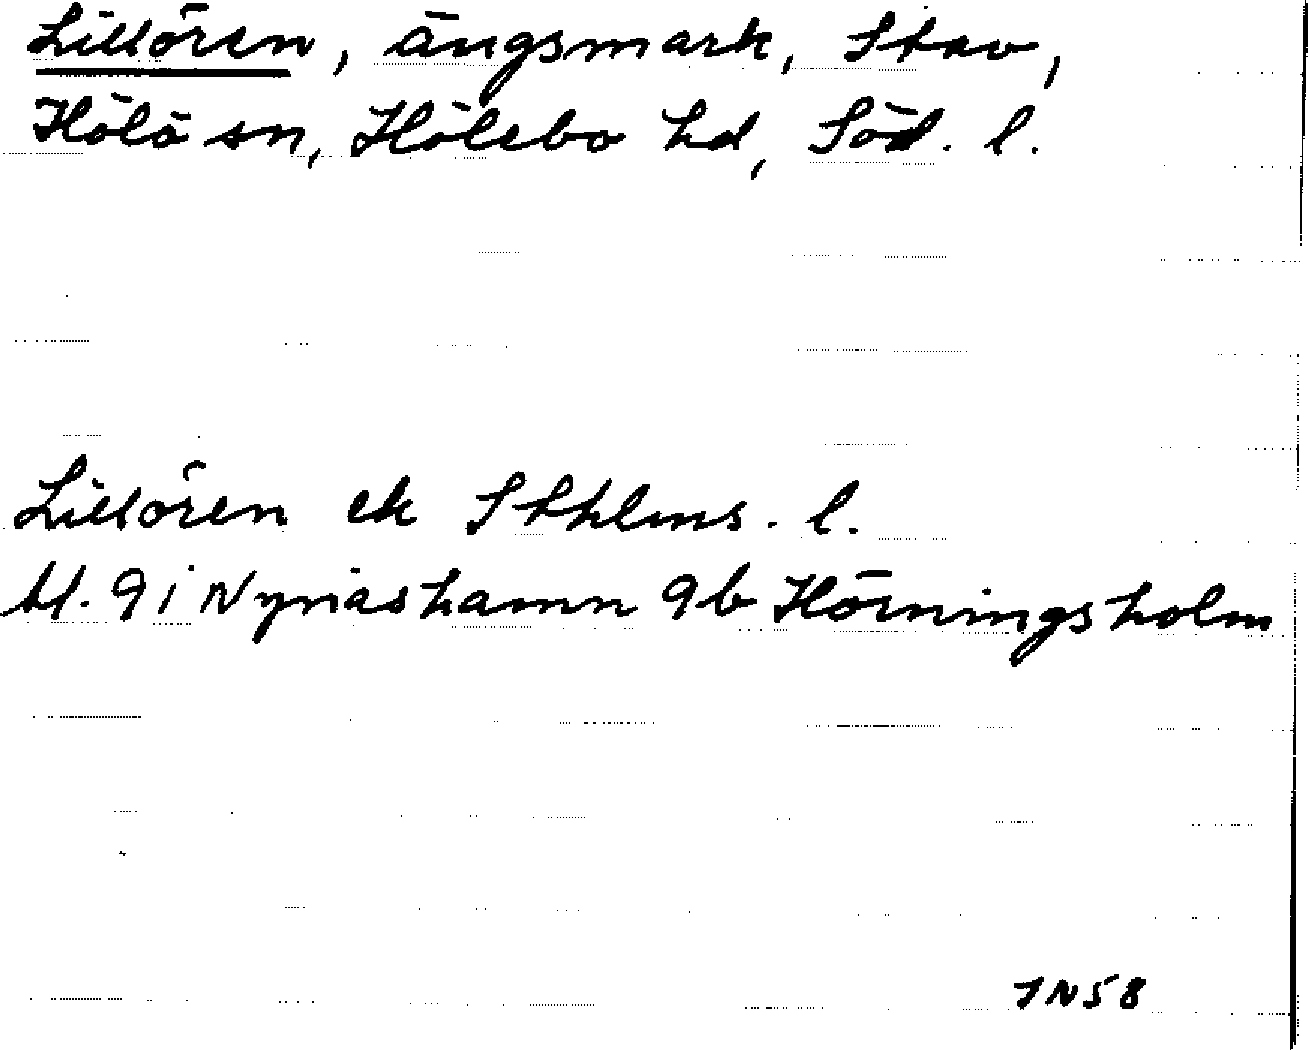 Lillören, ängsmark, Stav,
Hölö sn, Hölebo hd, Söd. l.
Lillören ek Sthlms. l.
bl. 9 i Nynäshamn 9b Hörningsholm
IN58